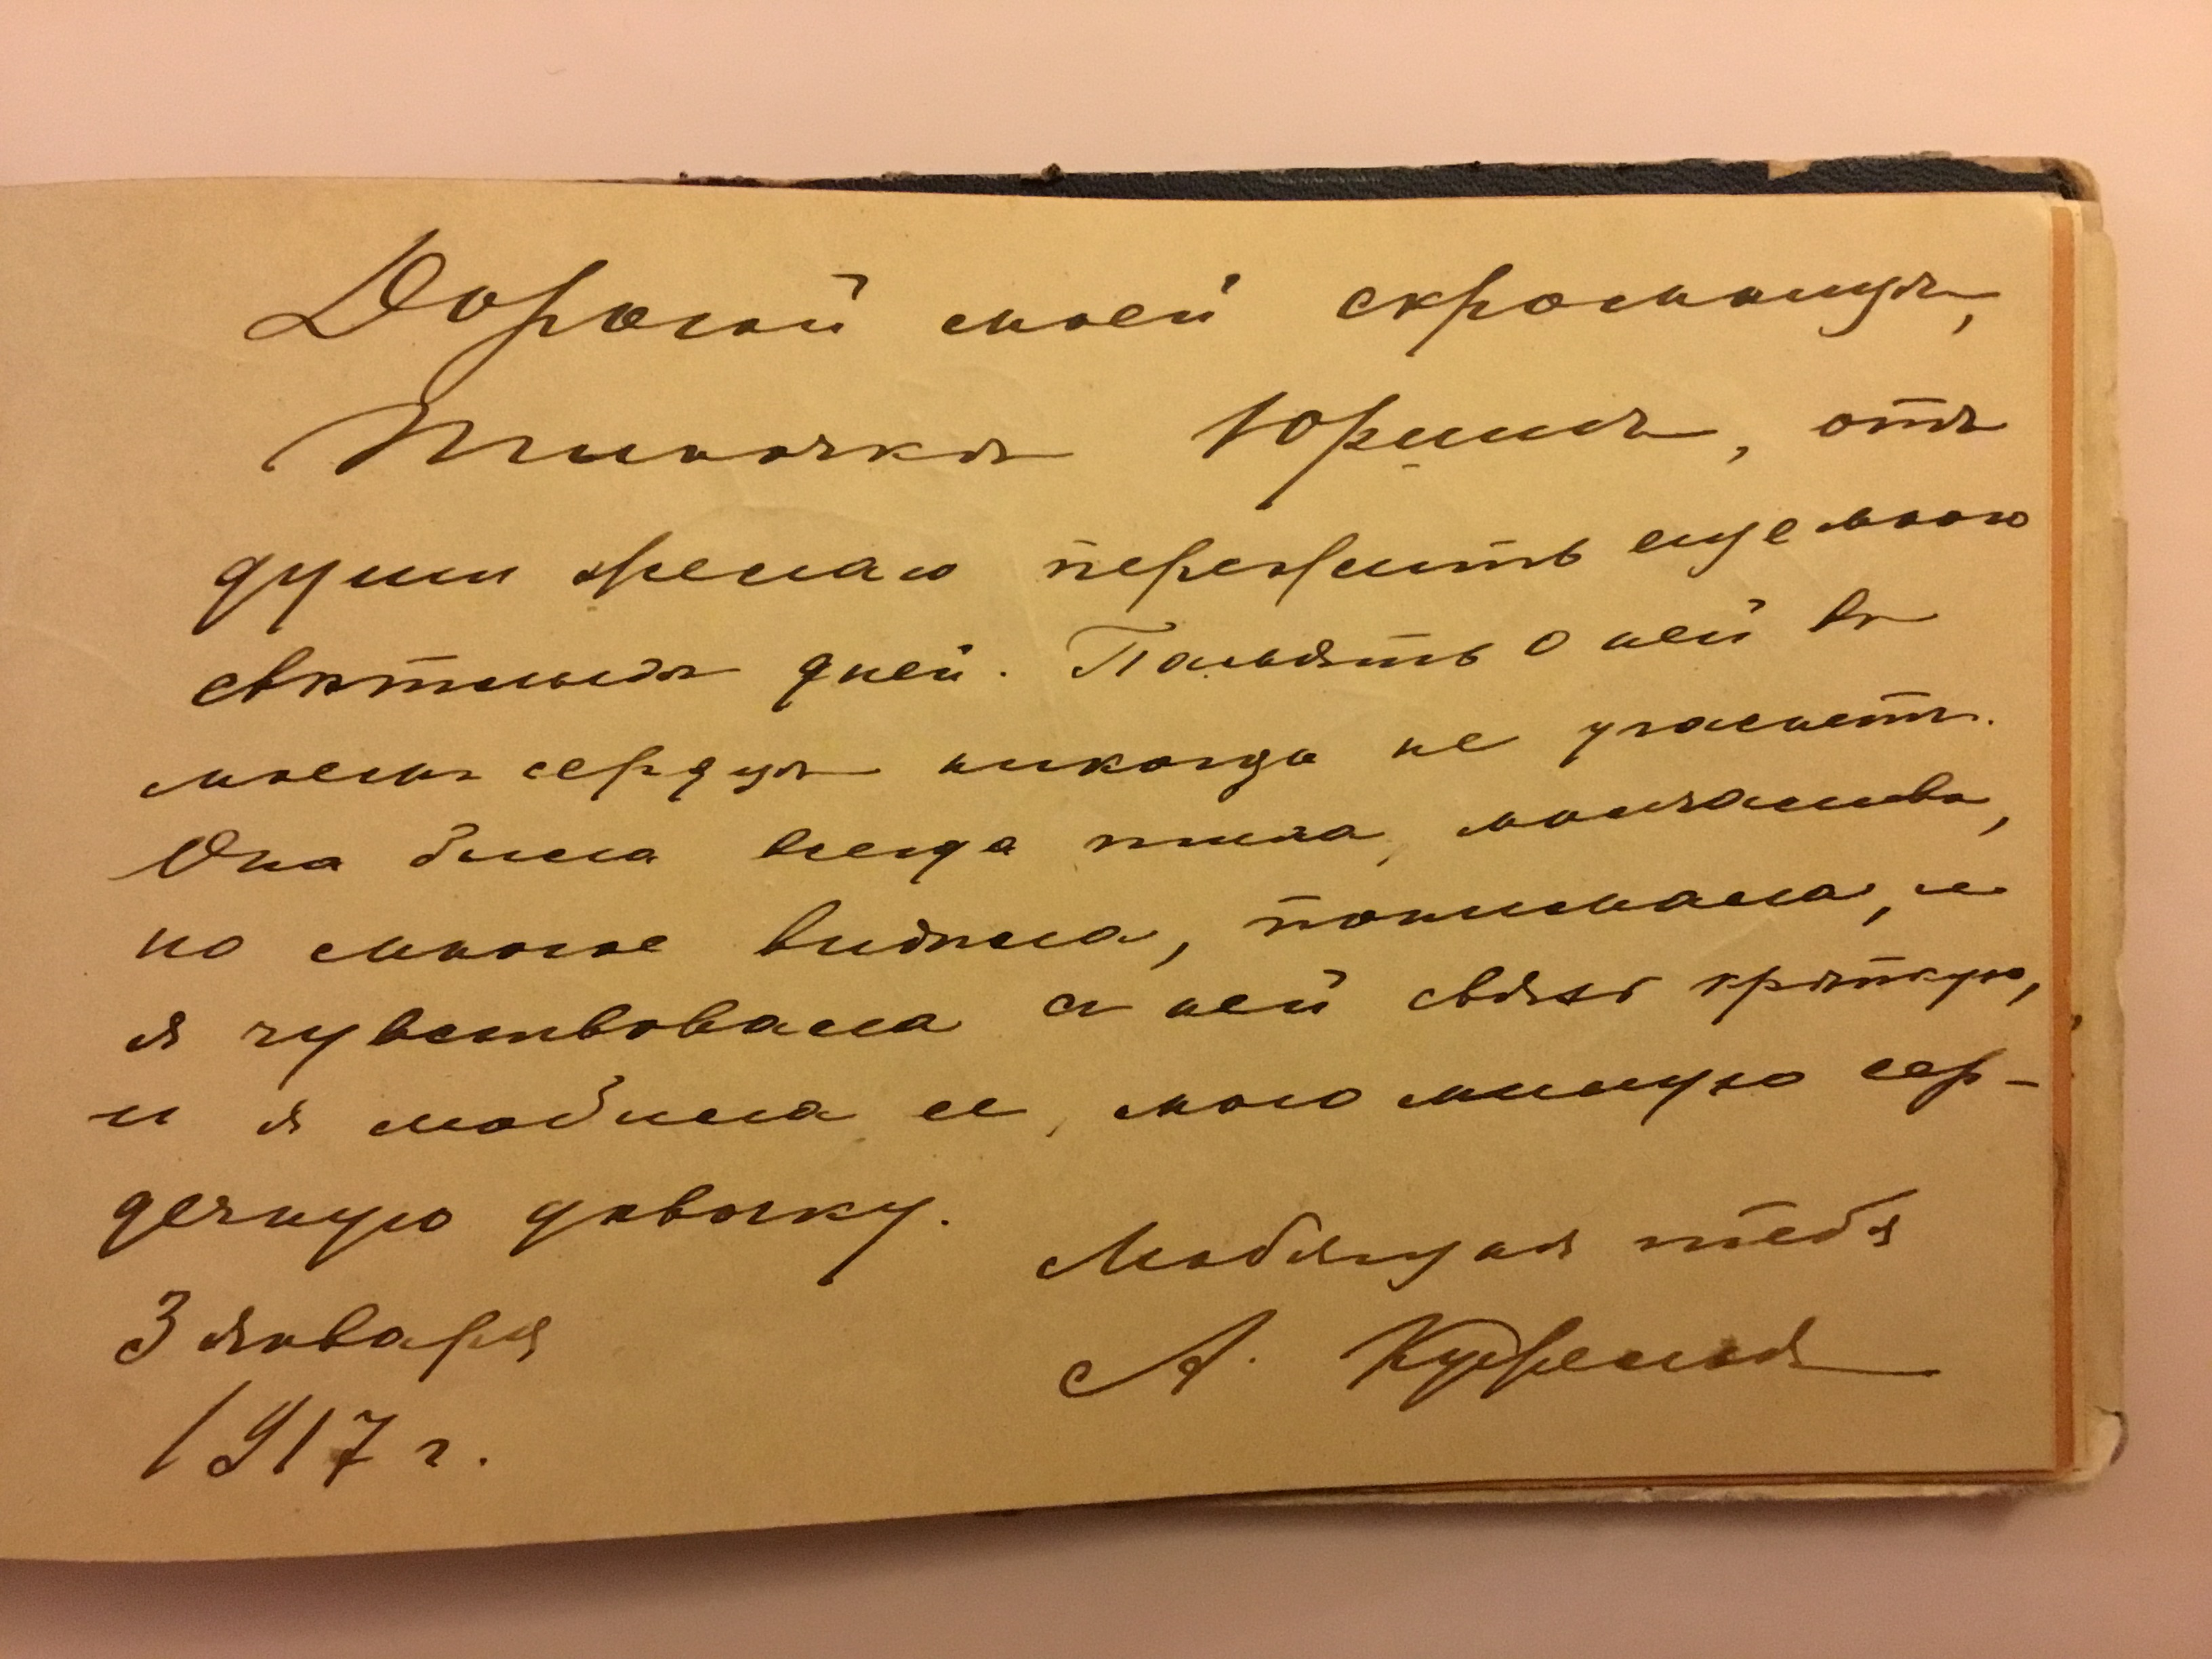 Дорогой моей скромницѣ,
Тиночкѣ отъ
души желаю пережить еще много
свѣтлыхъ дней. Память о ней въ
моемъ сердцѣ никогда не угаснетъ.
Она была всегда тиха, молчалива,
но многое видѣла, понимала, и
я чувствовала съ ней связь крѣпкую,
и я любила ее, мою милую сер-
дечную дѣвочку.
Любящая тебя
А.
3 января
1917 г.